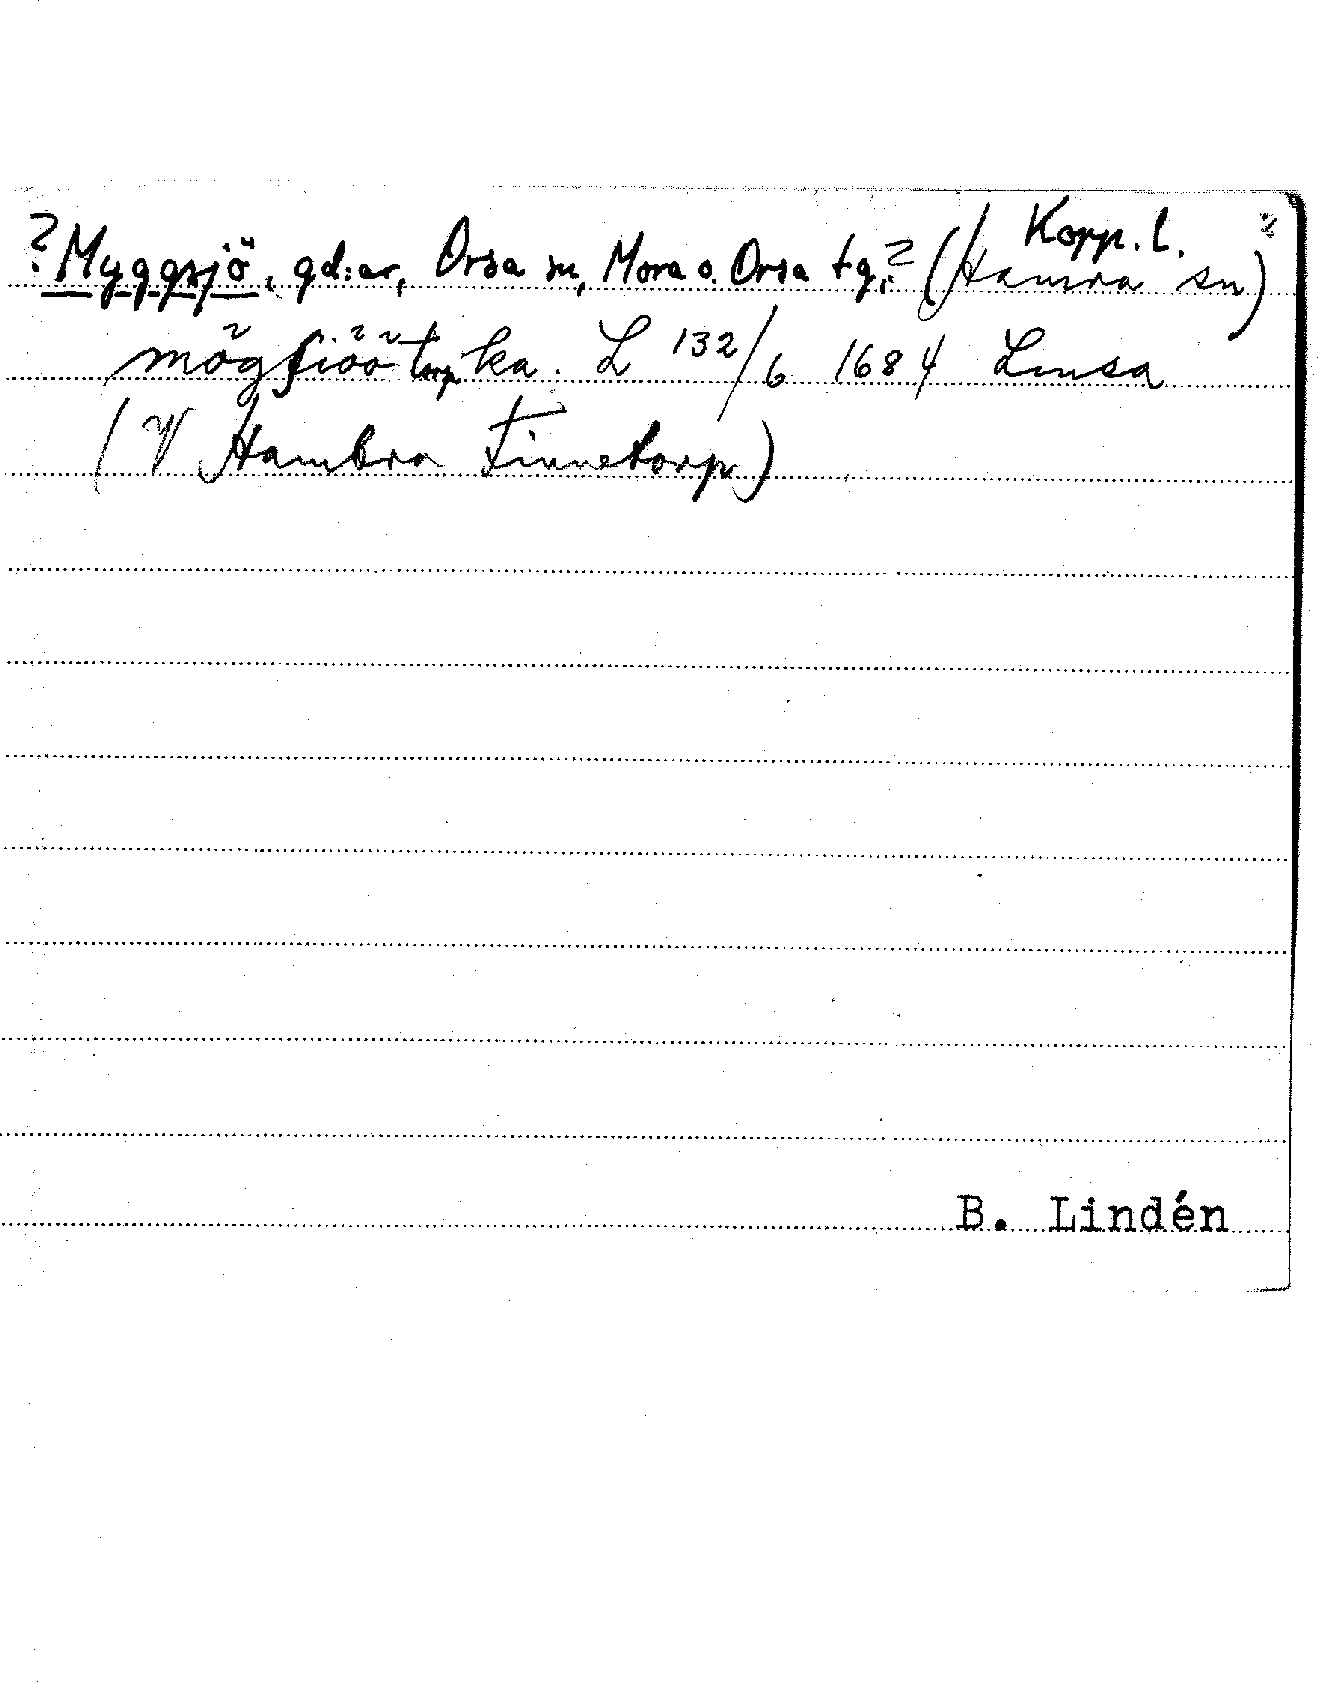 Kopp. l.
?Myggsjö, gd:ar, Orsa sn, Mora o. Orsa tg.? (Hamra sn)
mögsiöö torp ka. L 132/6 1684 Lmsa
(V Hambra Finnetorp)
B. Lindén